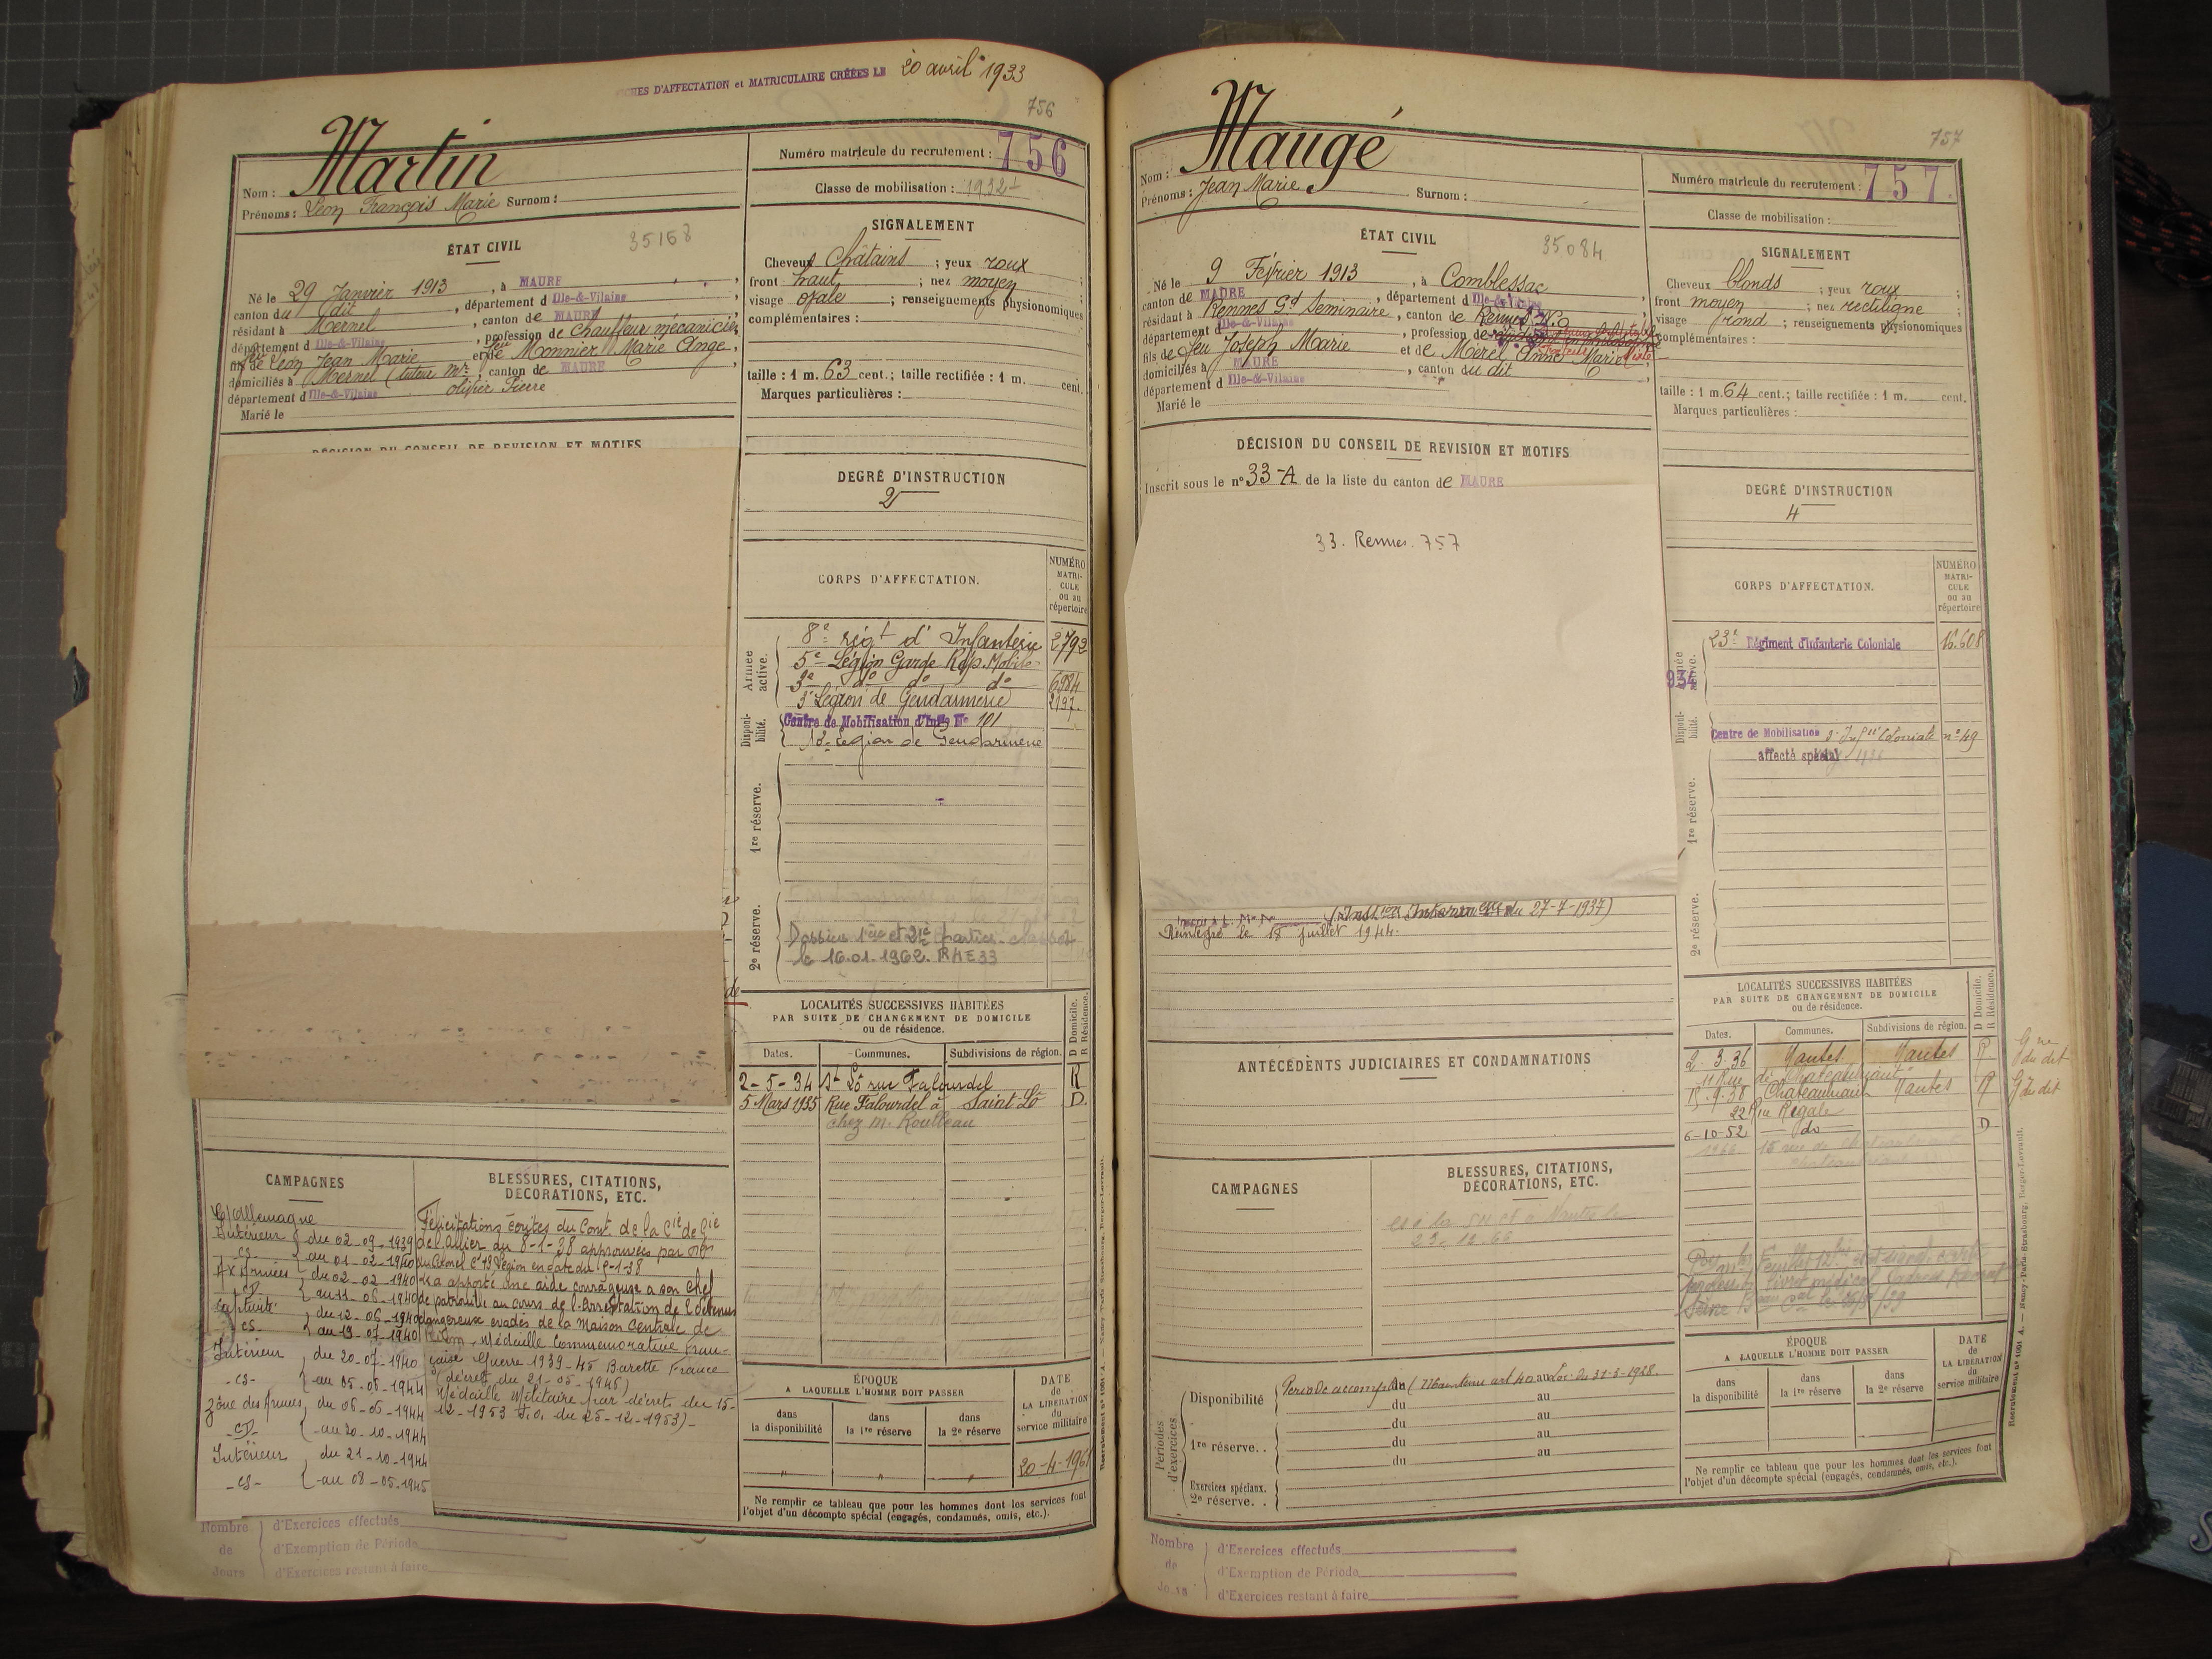 FICHES D'AFFECTATION et MATRICULAIRE CRÉÉES LE 20 avril 1933
756
Nom : Martin
Prénoms : Léon François Marie Surnom :
Numéro matricule du recrutement : 756
Classe de mobilisation : 1932
ÉTAT CIVIL
35168
Né le 29 Janvier 1913, à MAURE,
canton du dit, département d Ille-&-Vilaine,
résidant à Mernel, canton de MAURE,
département d Ille-&-Vilaine, profession de chauffeur mécanicien,
fils de feu Léon Jean Marie et de feue Monnier Marie Ange,
domiciliés à Mernel (tuteur Mr, canton de MAURE,
département d Ille-&-Vilaine olivier Pierre
Marié le
DÉCISION DU CONSEIL DE REVISION ET MOTIFS
SIGNALEMENT
Cheveux châtains ; yeux roux ;
front haut ; nez moyen ;
visage ovale ; renseignements physionomiques
complémentaires :
taille : 1 m. 63 cent.; taille rectifiée : 1 m. cent.
Marques particulières :
DEGRÉ D'INSTRUCTION
2
CORPS D'AFFECTATION.
NUMÉRO MATRI-CULE ou au répertoire
Armée active.
8e régt d'Infanterie 2792
5e Légion Garde Rép. Mobile
3e do do do 6984
3e Légion de Gendarmerie 2197.
Disponibilité.
Centre de Mobilisation d'Infie No 101
Légion de Gendarmerie
1re réserve.
2e réserve.
Dossier 1ère et 2e parties classés
le 16.01.1962. RHE 33
LOCALITÉS SUCCESSIVES HABITÉES
PAR SUITE DE CHANGEMENT DE DOMICILE
ou de résidence.
D Domicile.
R Résidence.
Dates. Communes. Subdivisions de région.
2-5-34 St Lô rue Falourdel R
5 Mars 1935 Rue Falourdel à Saint-Lô D.
chez M. Roulleau
CAMPAGNES
C/ Allemagne
Intérieur du 02-09-1939
CS au 01-02-1940
Ax Armées du 02-02-1940
CD au 11-06-1940
Captivité du 12-06-1940
CS au 19-07-1940
Intérieur du 20-07-1940
-CS- au 05-06-1944
Zône des Armées du 06-06-1944
-CD- au 20-10-1944
Intérieur du 21-10-1944
-CS- au 08-05-1945
BLESSURES, CITATIONS,
DÉCORATIONS, ETC.
Félicitations écrites du Comt de la Cie de Gie
de l'Allier du 8-1-38 approuvées par
du Colonel Ct 13e Légion en date du 9-1-38
"a apporté une aide courageuse à son chef
de patrouille au cours de l'arrestation de 2 détenus
dangereux évadés de la Maison Centrale de
Riom. Médaille Commémorative Fran-
çaise Guerre 1939-45 Barette France
(décret du 21-05-1946)
Médaille Militaire par décret du 15-
12-1953 J.O. du 25-12-1953)-
ÉPOQUE
A LAQUELLE L'HOMME DOIT PASSER
DATE de LA LIBÉRATION du service militaire
dans la disponibilité
dans la 1re réserve
dans la 2e réserve
" " " 20-4-1961
Ne remplir ce tableau que pour les hommes dont les services font
l'objet d'un décompte spécial (engagés, condamnés, omis, etc.).
Nombre de Jours
d'Exercices effectués
d'Exemption de Période
d'Exercices restant à faire
757
Nom : Maugé
Prénoms : Jean Marie Surnom :
Numéro matricule du recrutement : 757.
Classe de mobilisation :
ÉTAT CIVIL
35084
Né le 9 Février 1913, à Comblessac,
canton de MAURE, département d Ille-&-Vilaine,
résidant à Rennes Gd Séminaire, canton de Rennes N.O
département d Ille-&-Vilaine, profession de
fils de feu Joseph Marie et de Merel Anne Marie,
domiciliés à MAURE, canton du dit,
département d Ille-&-Vilaine
Marié le
DÉCISION DU CONSEIL DE REVISION ET MOTIFS
Inscrit sous le no 33-A de la liste du canton de MAURE
33. Rennes. 757
(Instion Interm elle du 27-7-1937)
Réintégré le 18 juillet 1944.
ANTÉCÉDENTS JUDICIAIRES ET CONDAMNATIONS
CAMPAGNES
BLESSURES, CITATIONS,
DÉCORATIONS, ETC.
à la SNCF à Nantes le
23.12.66
Périodes d'exercices
Disponibilité Période accomplie (Maintenu art 40 au Loi du 31-3-1928.
du au
du au
1re réserve. . du au
du au
Exercices spéciaux.
2e réserve. .
SIGNALEMENT
Cheveux blonds ; yeux roux ;
front moyen ; nez rectiligne ;
visage rond ; renseignements physionomiques
complémentaires :
taille : 1 m. 64 cent.; taille rectifiée : 1 m. cent.
Marques particulières :
DEGRÉ D'INSTRUCTION
4
CORPS D'AFFECTATION.
NUMÉRO MATRI-CULE ou au répertoire
Armée active.
934
23e Régiment d'infanterie Coloniale 16.608
Disponibilité.
Centre de Mobilisation d'Infie Coloniale no 49
affecté spécial
1re réserve.
2e réserve.
LOCALITÉS SUCCESSIVES HABITÉES
PAR SUITE DE CHANGEMENT DE DOMICILE
ou de résidence.
D Domicile.
R Résidence.
Dates. Communes. Subdivisions de région.
2.3.36 Nantes Nantes R Gne du dit
11 Rue de Chateaubriant
15.9.38 Chateaubriant Nantes R G du dit
22 Rue Régale
6-10-52 do D
1966. 15 rue de Chateaubriant
ÉPOQUE
A LAQUELLE L'HOMME DOIT PASSER
DATE de LA LIBÉRATION du service militaire
dans la disponibilité
dans la 1re réserve
dans la 2e réserve
Ne remplir ce tableau que pour les hommes dont les services font
l'objet d'un décompte spécial (engagés, condamnés, omis, etc.).
Recrutement No 1061 A. — Nancy-Paris-Strasbourg, Berger-Levrault.
Nombre de Jours
d'Exercices effectués
d'Exemption de Période
d'Exercices restant à faire